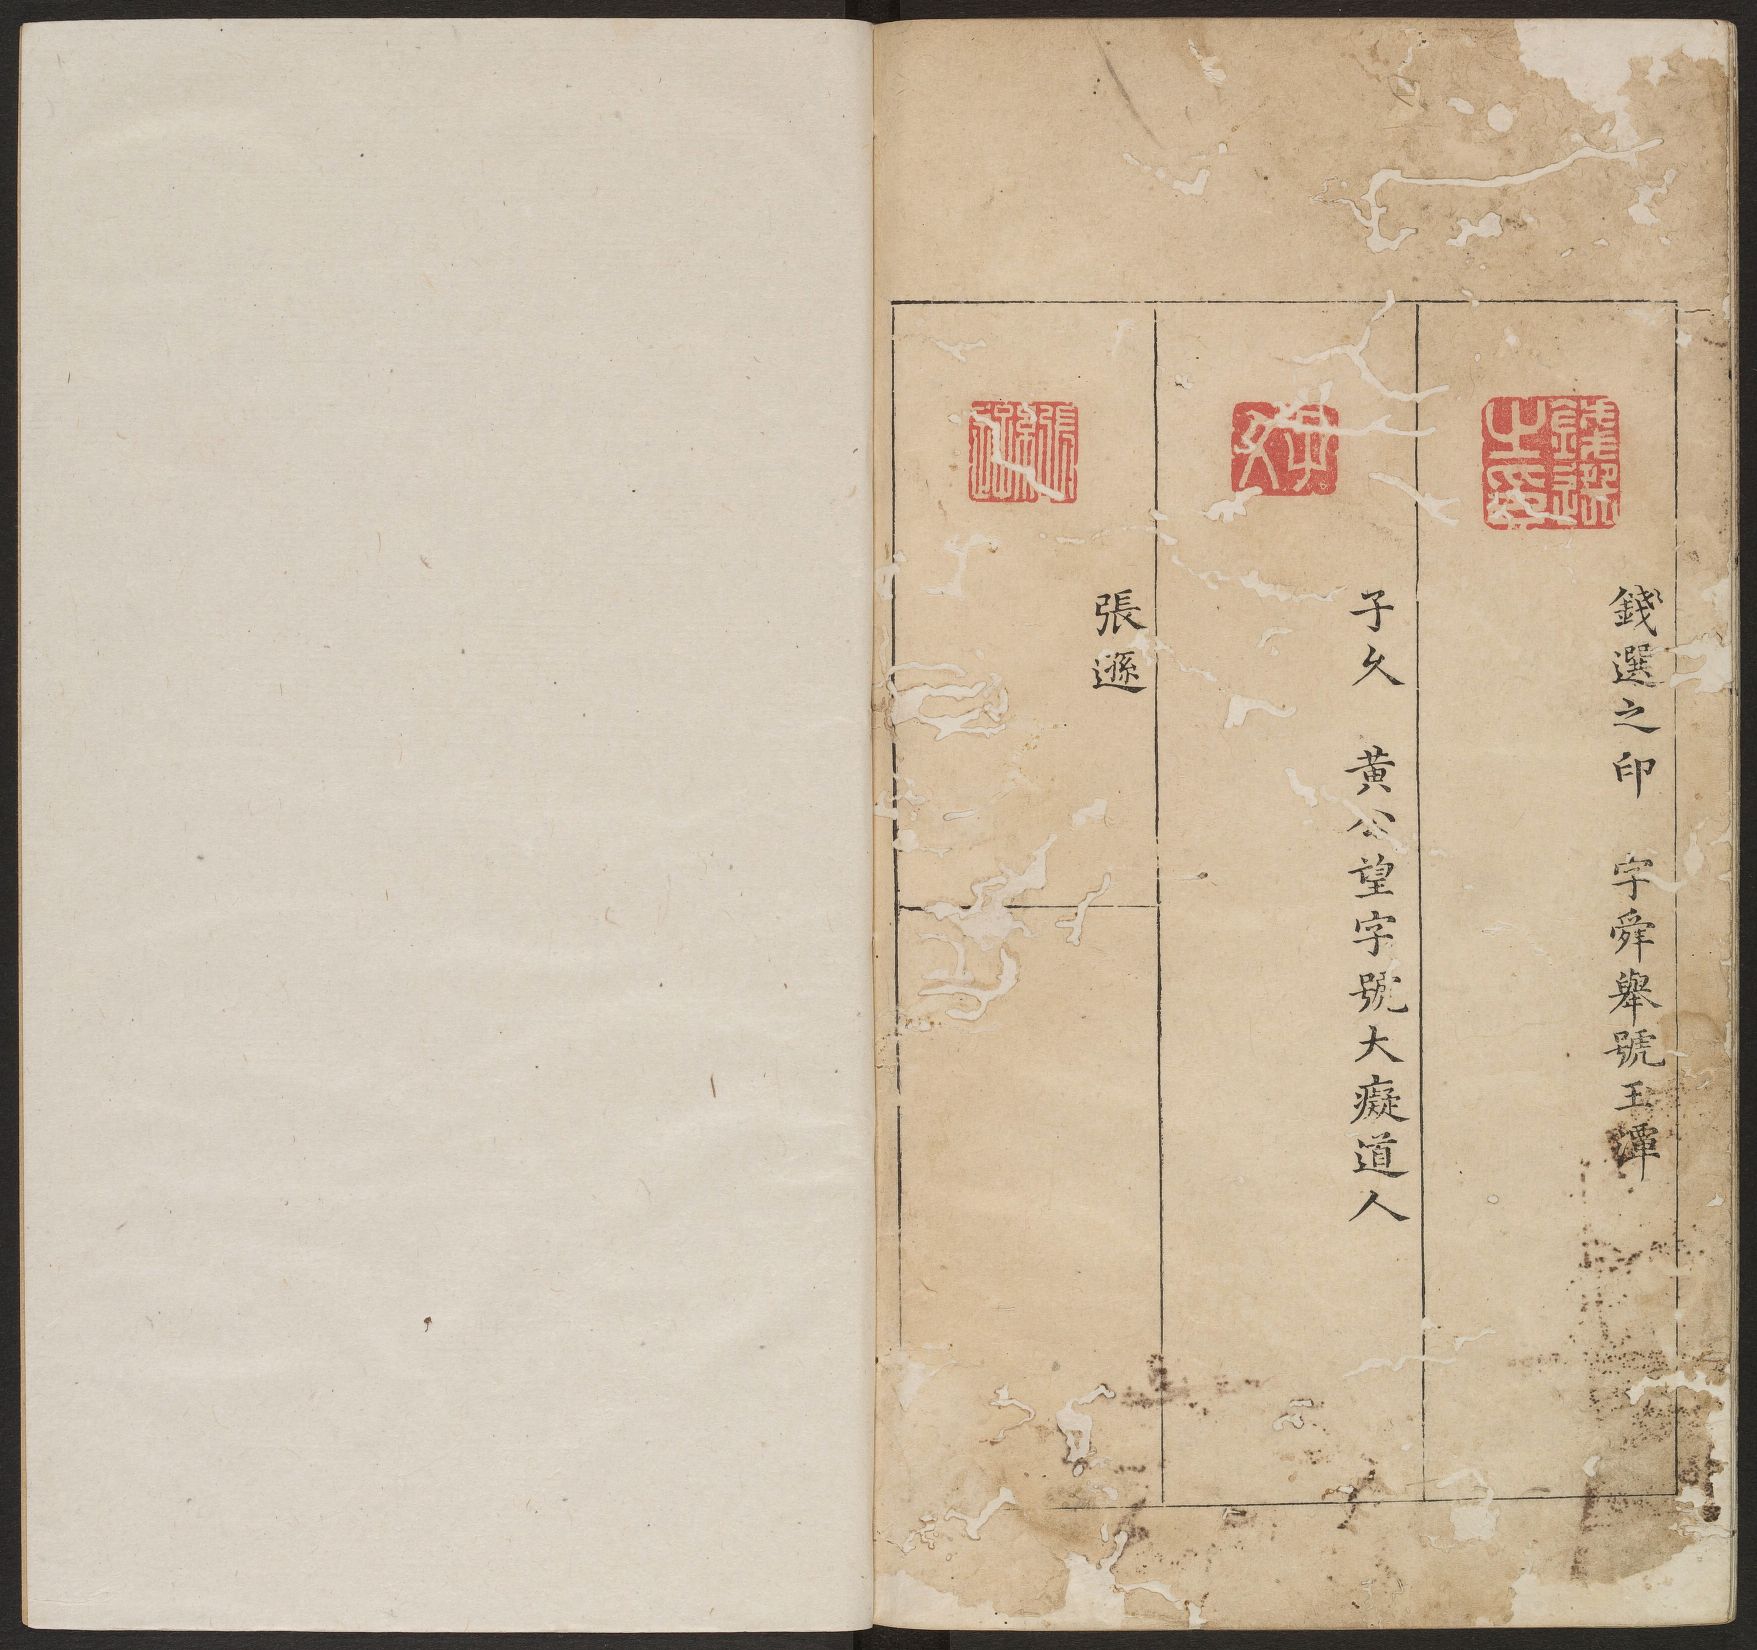 錢選之印
錢選之印　字舜舉號玉潭
子久
子久　黃公望字號大癡道人
張遜
張遜